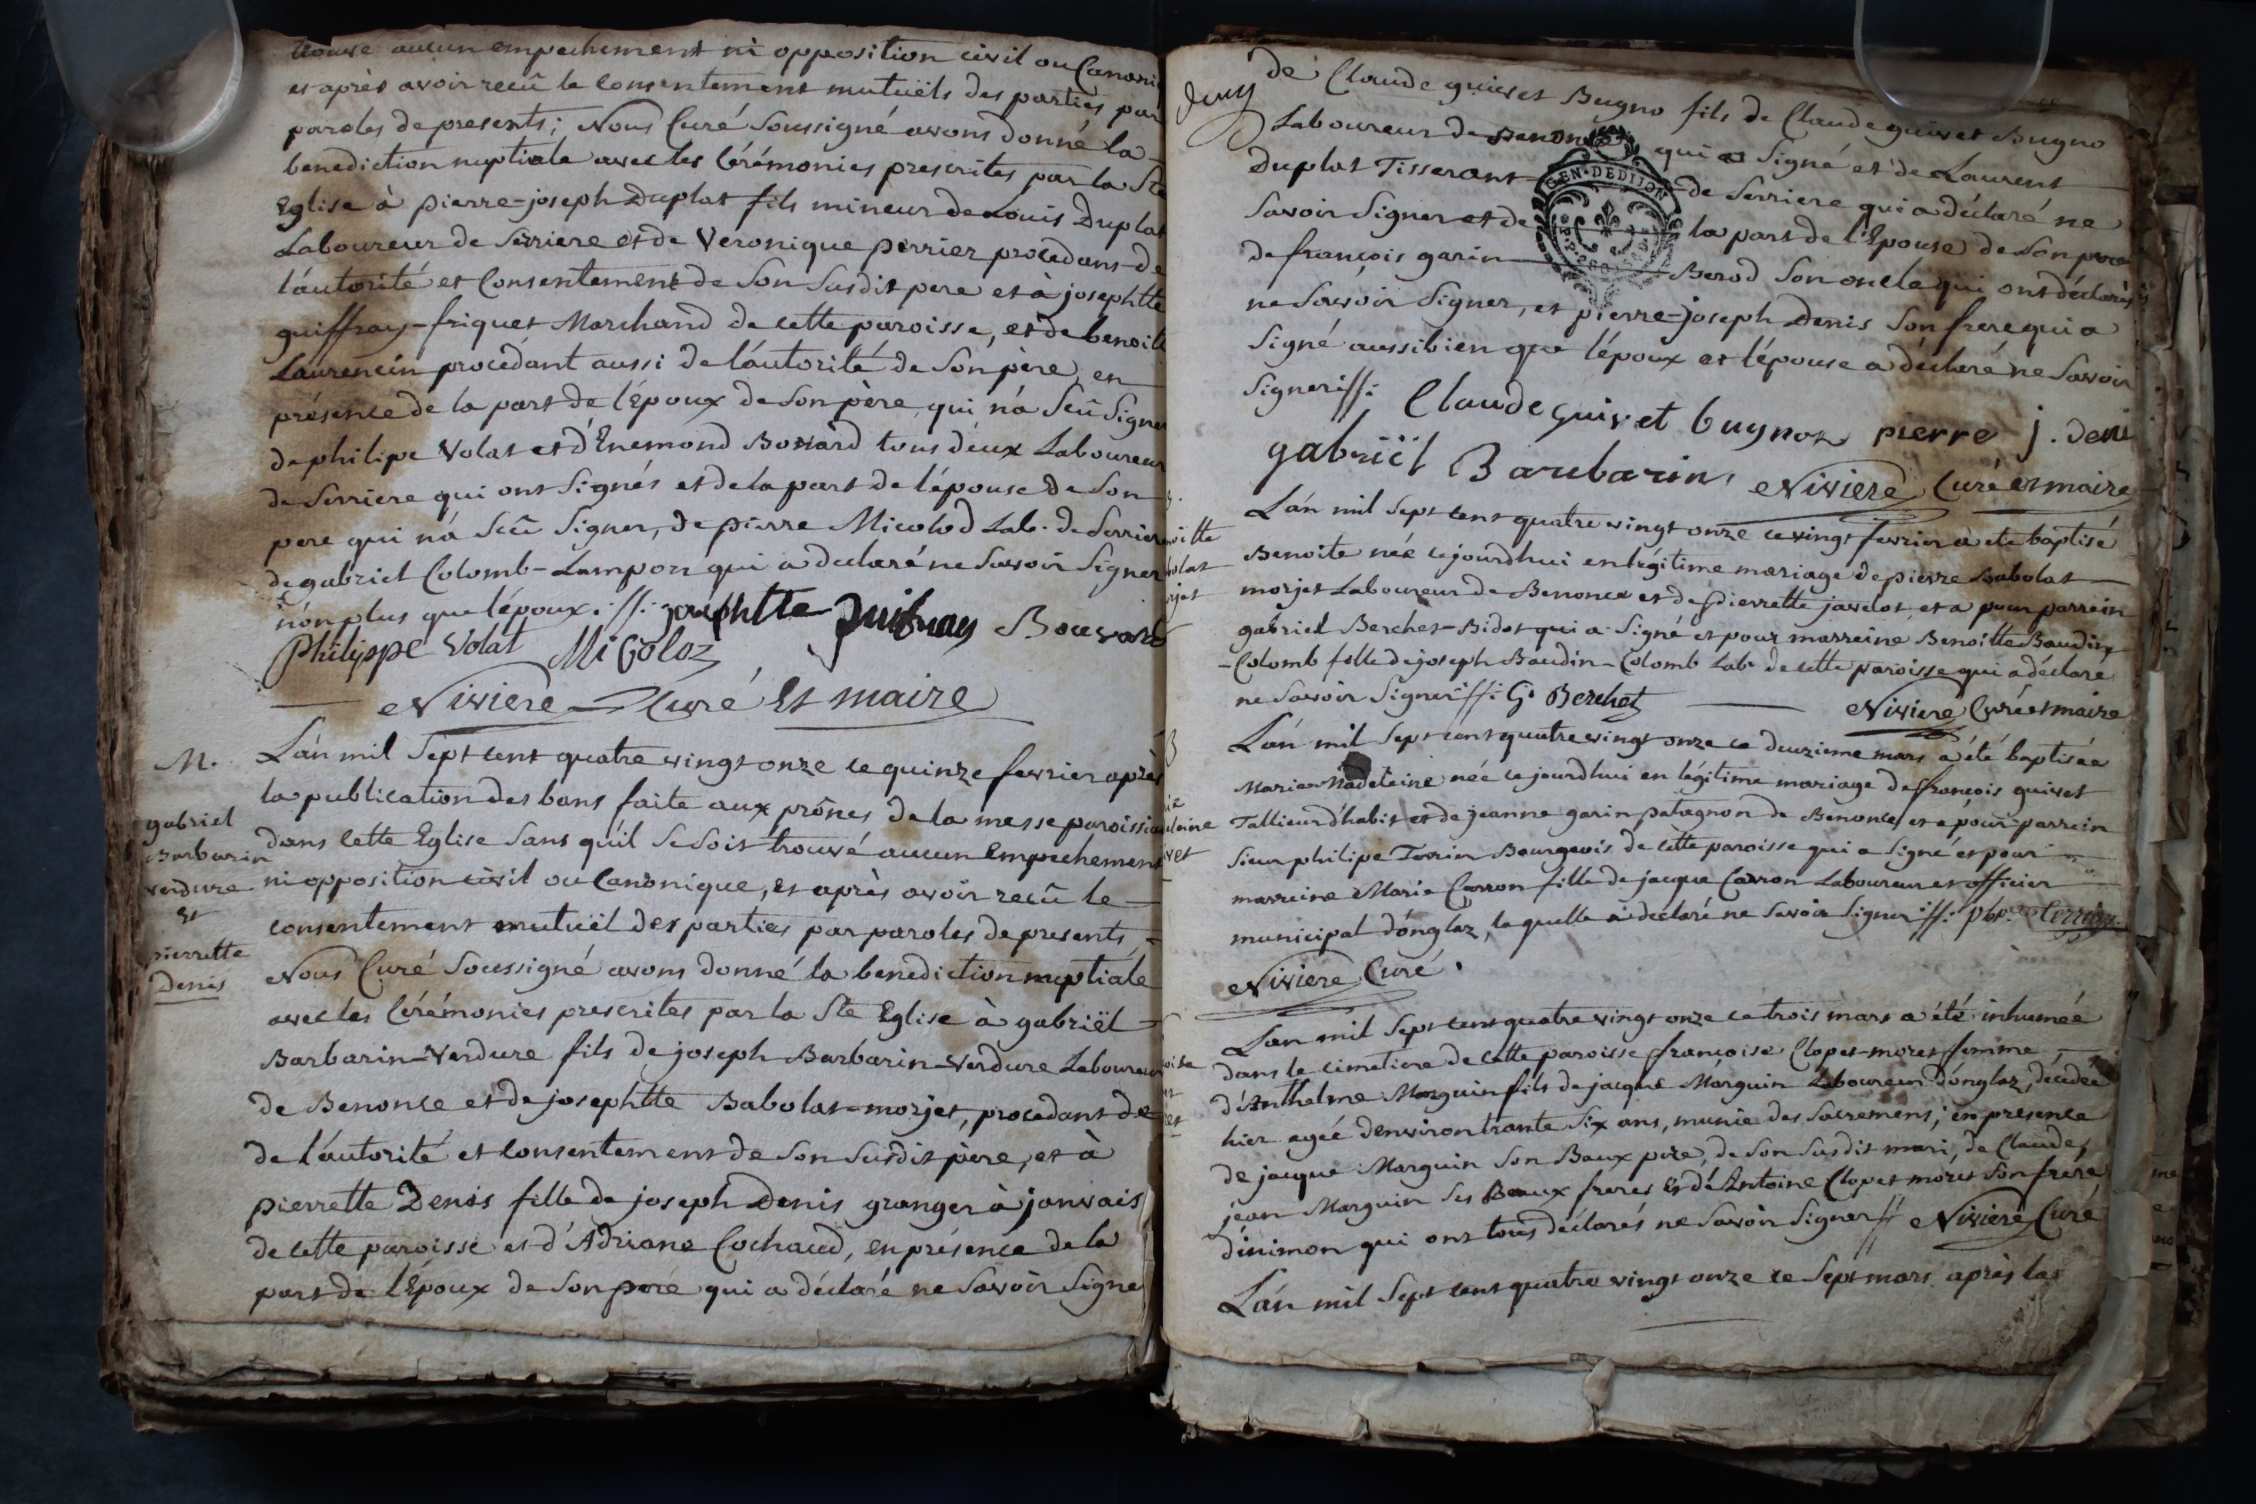 trouvé aucun empechement ni opposition civil ou Canoni
et après avoir recû le consentement mutuëls des parties par
paroles de presents; Nous Curé Soussigné avons donné la
benediction nuptiale avec les Cérémonies prescrites par la Ste
Eglise à pierre-joseph Duplat fils mineur de Louis Duplat
Laboureur de Serriere et de Veronique perrier procedant de
l'autorité et Consentement de Son Susdit pere et à josephtte
guiffray-friquet Marchand de cette paroisse, et de benoite
Laurencin procédant aussi de l'autorité de Son père, en
présence de la part de l'Epoux de Son père qui n'a Seû Signer
de philipe Volat et d'Enemond Bouvard tous deux Laboureur
de Serriere qui ont Signés et de la part de l'épouse de Son
pere qui n'a Sceû Signer, de pierre Micolod Lab. de Serriere
de gabriel Colomb-Lampon qui a declaré ne Savoir Signer
non plus que l'époux .//. josephtte guifray Bouvard
Philippe Volat Micoloz
Niviere Curé et maire
M.
gabriel
Barbarin
verdure
et
pierrette
Denis
L'an mil Sept cent quatre vingt onze ce quinze fevrier après
la publication des bans faite aux prônes de la messe paroissia
dans cette Eglise Sans qu'il Se Soit trouvé aucun Empechement
ni opposition civil ou Canonique, et après avoir recû le
consentement mutuël des parties par paroles de presents,
Nous Curé Soussigné avons donné la benediction nuptiale
avec les Cérémonies prescrites par la Ste Eglise à gabriël
Barbarin-Verdure fils de joseph Barbarin-verdure Laboureur
de Benonce et de josephtte Babolat-morjet, procedant de
de l'autorité et consentement de Son Susdit père, et à
pierrette Denis fille de joseph Denis granger à janvais
de cette paroisse et d'Adriane Cochaud, en présence de la
part de l'Epoux de Son peré qui a déclaré ne Savoir Signe
de Claude guivet Bugno fils de Claude guivet Bugno
Laboureur de Benonce qui a Signé et de Laurent
Duplat Tisserant de Serriere qui a déclaré ne
GEN. DE DIJON
Savoir Signer et de la part de l'Epouse de Son pere
de françois garin Berod Son oncle qui ont déclarés
ne Savoir Signer, et pierre-joseph Denis Son frere qui a
Signé aussi bien que l'époux et l'épouse a déclaré ne Savoir
Signer .//. Claude guivet bugnoz pierre j. deni
gabriël Barbarin, Niviere Curé et maire
L'an mil Sept cent quatre vingt onze ce vingt fevrier a ete baptisé
Benoite née ce jourdhui en légitime mariage de pierre Babolat
morjet Laboureur de Benonce et de pierrette javelot, et a pour parrein
gabriel Berchet-Bidot qui a Signé et pour marreine Benoitte Baudin
-Colomb fille de joseph Baudin-Colomb Labr de cette paroisse qui a déclaré
ne Savoir Signer .//. G. Berchet Niviere Curé et maire
L'an mil Sept cent quatre vingt onze ce deuzieme mars a été baptisée
Marie-Madeleine née ce jourdhui en légitime mariage de françois guivet
Tallieur d'habit et de jeanne garin patagnon de Benonce, et a pour parrein
Sieur philipe Terrin Bourgeois de cette paroisse qui a Signé et pour
marreine Marie Carron fille de jacque Carron Laboureur et officier
municipal d'onglaz, laquelle a déclaré ne Savoir Signer .//.
Niviere Curé.
L'an mil Sept cent quatre vingt onze ce trois mars a été inhumée
dans le cimetiere de cette paroisse françoise Clopet-moret femme
d'Anthelme Marguin fils de jacque Marguin Laboureur d'onglaz, décédée
hier agée d'environ trante Six ans, munie des Sacremens; en presence
de jacque Marguin Son Baux pere, de Son Susdit mari, de Claude,
jean Marguin Ses Beaux freres et d'Antoine Clopet moret Son frere
d'inimon qui ont tous déclarés ne Savoir Signer // Niviere Curé
L'an mil Sept cent quatre vingt onze ce Sept mars après les